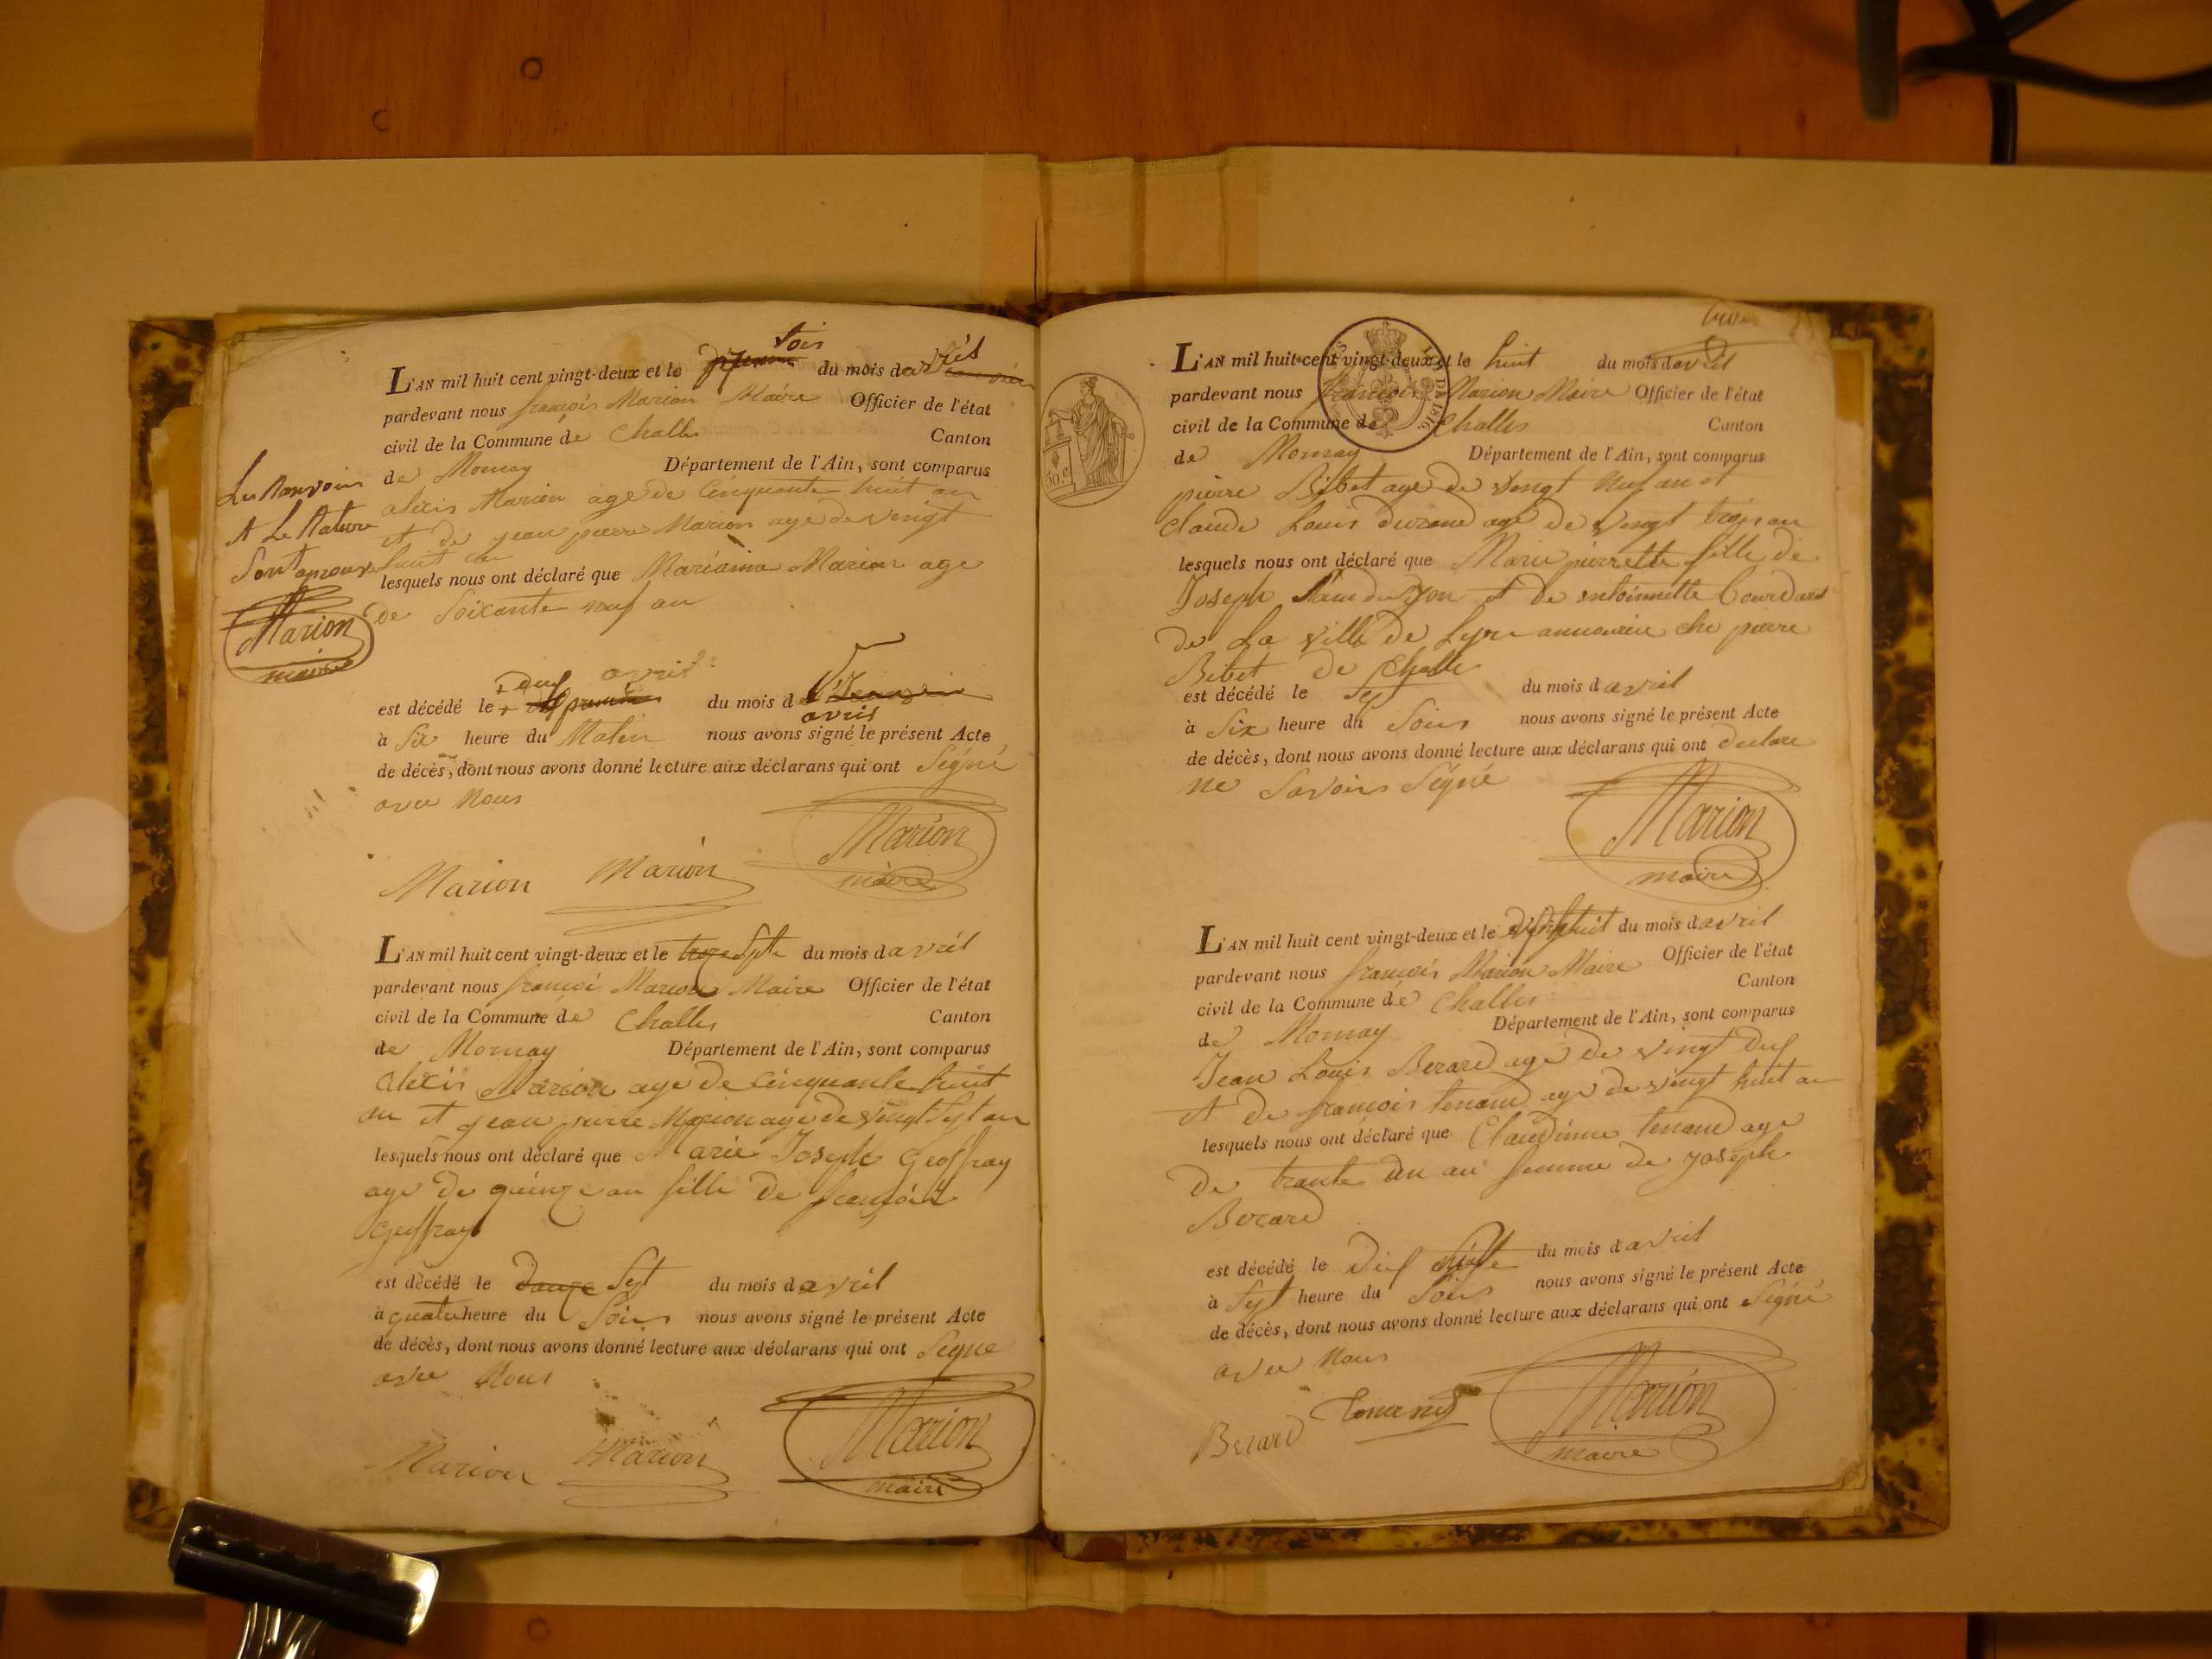 L'AN mil huit cent vingt-deux et le tois du mois davril
pardevant nous françois Marion Maire Officier de l'état
civil de la Commune de Challes Canton
de Mornay Département de l'Ain, sont comparus
alexis Marion age de Cinquante huit an
et de jean pierre Marion age de vingt
huit an
lesquels nous ont déclaré que Marianne Marion age
de Soixante neuf an
Les Ranvoins
et Le Rature
Sont aprouve
Marion
maire
deuf avril
est décédé le le premier du mois d Janvier
avril
à Six heure du Matin nous avons signé le présent Acte
de décès, dont nous avons donné lecture aux déclarans qui ont Signé
avec Nous
Marion Marion Marion
maire
L'AN mil huit cent vingt-deux et le treze Sept du mois d avril
pardevant nous françois Marion Maire Officier de l'état
civil de la Commune de Challes Canton
de Mornay Département de l'Ain, sont comparus
alexis Marion age de Cinquante huit
an et jean pierre Marion age de vingt Sept an
lesquels nous ont déclaré que Marie Joseph Geoffray
age de quinze an fille de françois
Geoffray
est décédé le douze Sept du mois d avril
à quatre heure du Soir nous avons signé le présent Acte
de décès, dont nous avons donné lecture aux déclarans qui ont Signe
avec Nous
Marion Marion Marion
maire
L'AN mil huit cent vingt-deux et le huit du mois d avril
pardevant nous françois Marion Maire Officier de l'état
civil de la Commune de Challes Canton
de Mornay Département de l'Ain, sont comparus
pierre Bibet age de vingt neuf an et
claude Louis durand age de vingt trois an
lesquels nous ont déclaré que Marie pierrette fille de
Joseph et de entoinnette
de La ville de Lyon che pierre
Bibet de Challe
est décédé le Sept du mois d avril
à Six heure du Soir nous avons signé le présent Acte
de décès, dont nous avons donné lecture aux déclarans qui ont declare
ne Savoir Signé
Marion
maire
50.c
1816
L'AN mil huit cent vingt-deux et le du mois d avril
pardevant nous françois Marion Maire Officier de l'état
civil de la Commune de Challes Canton
de Mornay Département de l'Ain, sont comparus
Jean Louis Berard age de vingt deuf
et de françois tenand age de vingt huit an
lesquels nous ont déclaré que Claudinne tenand age
de trante un an femme de joseph
Berard
est décédé le du mois d avril
à Sept heure du Soir nous avons signé le présent Acte
de décès, dont nous avons donné lecture aux déclarans qui ont Signé
avec Nous
Berard Tenand Marion
maire